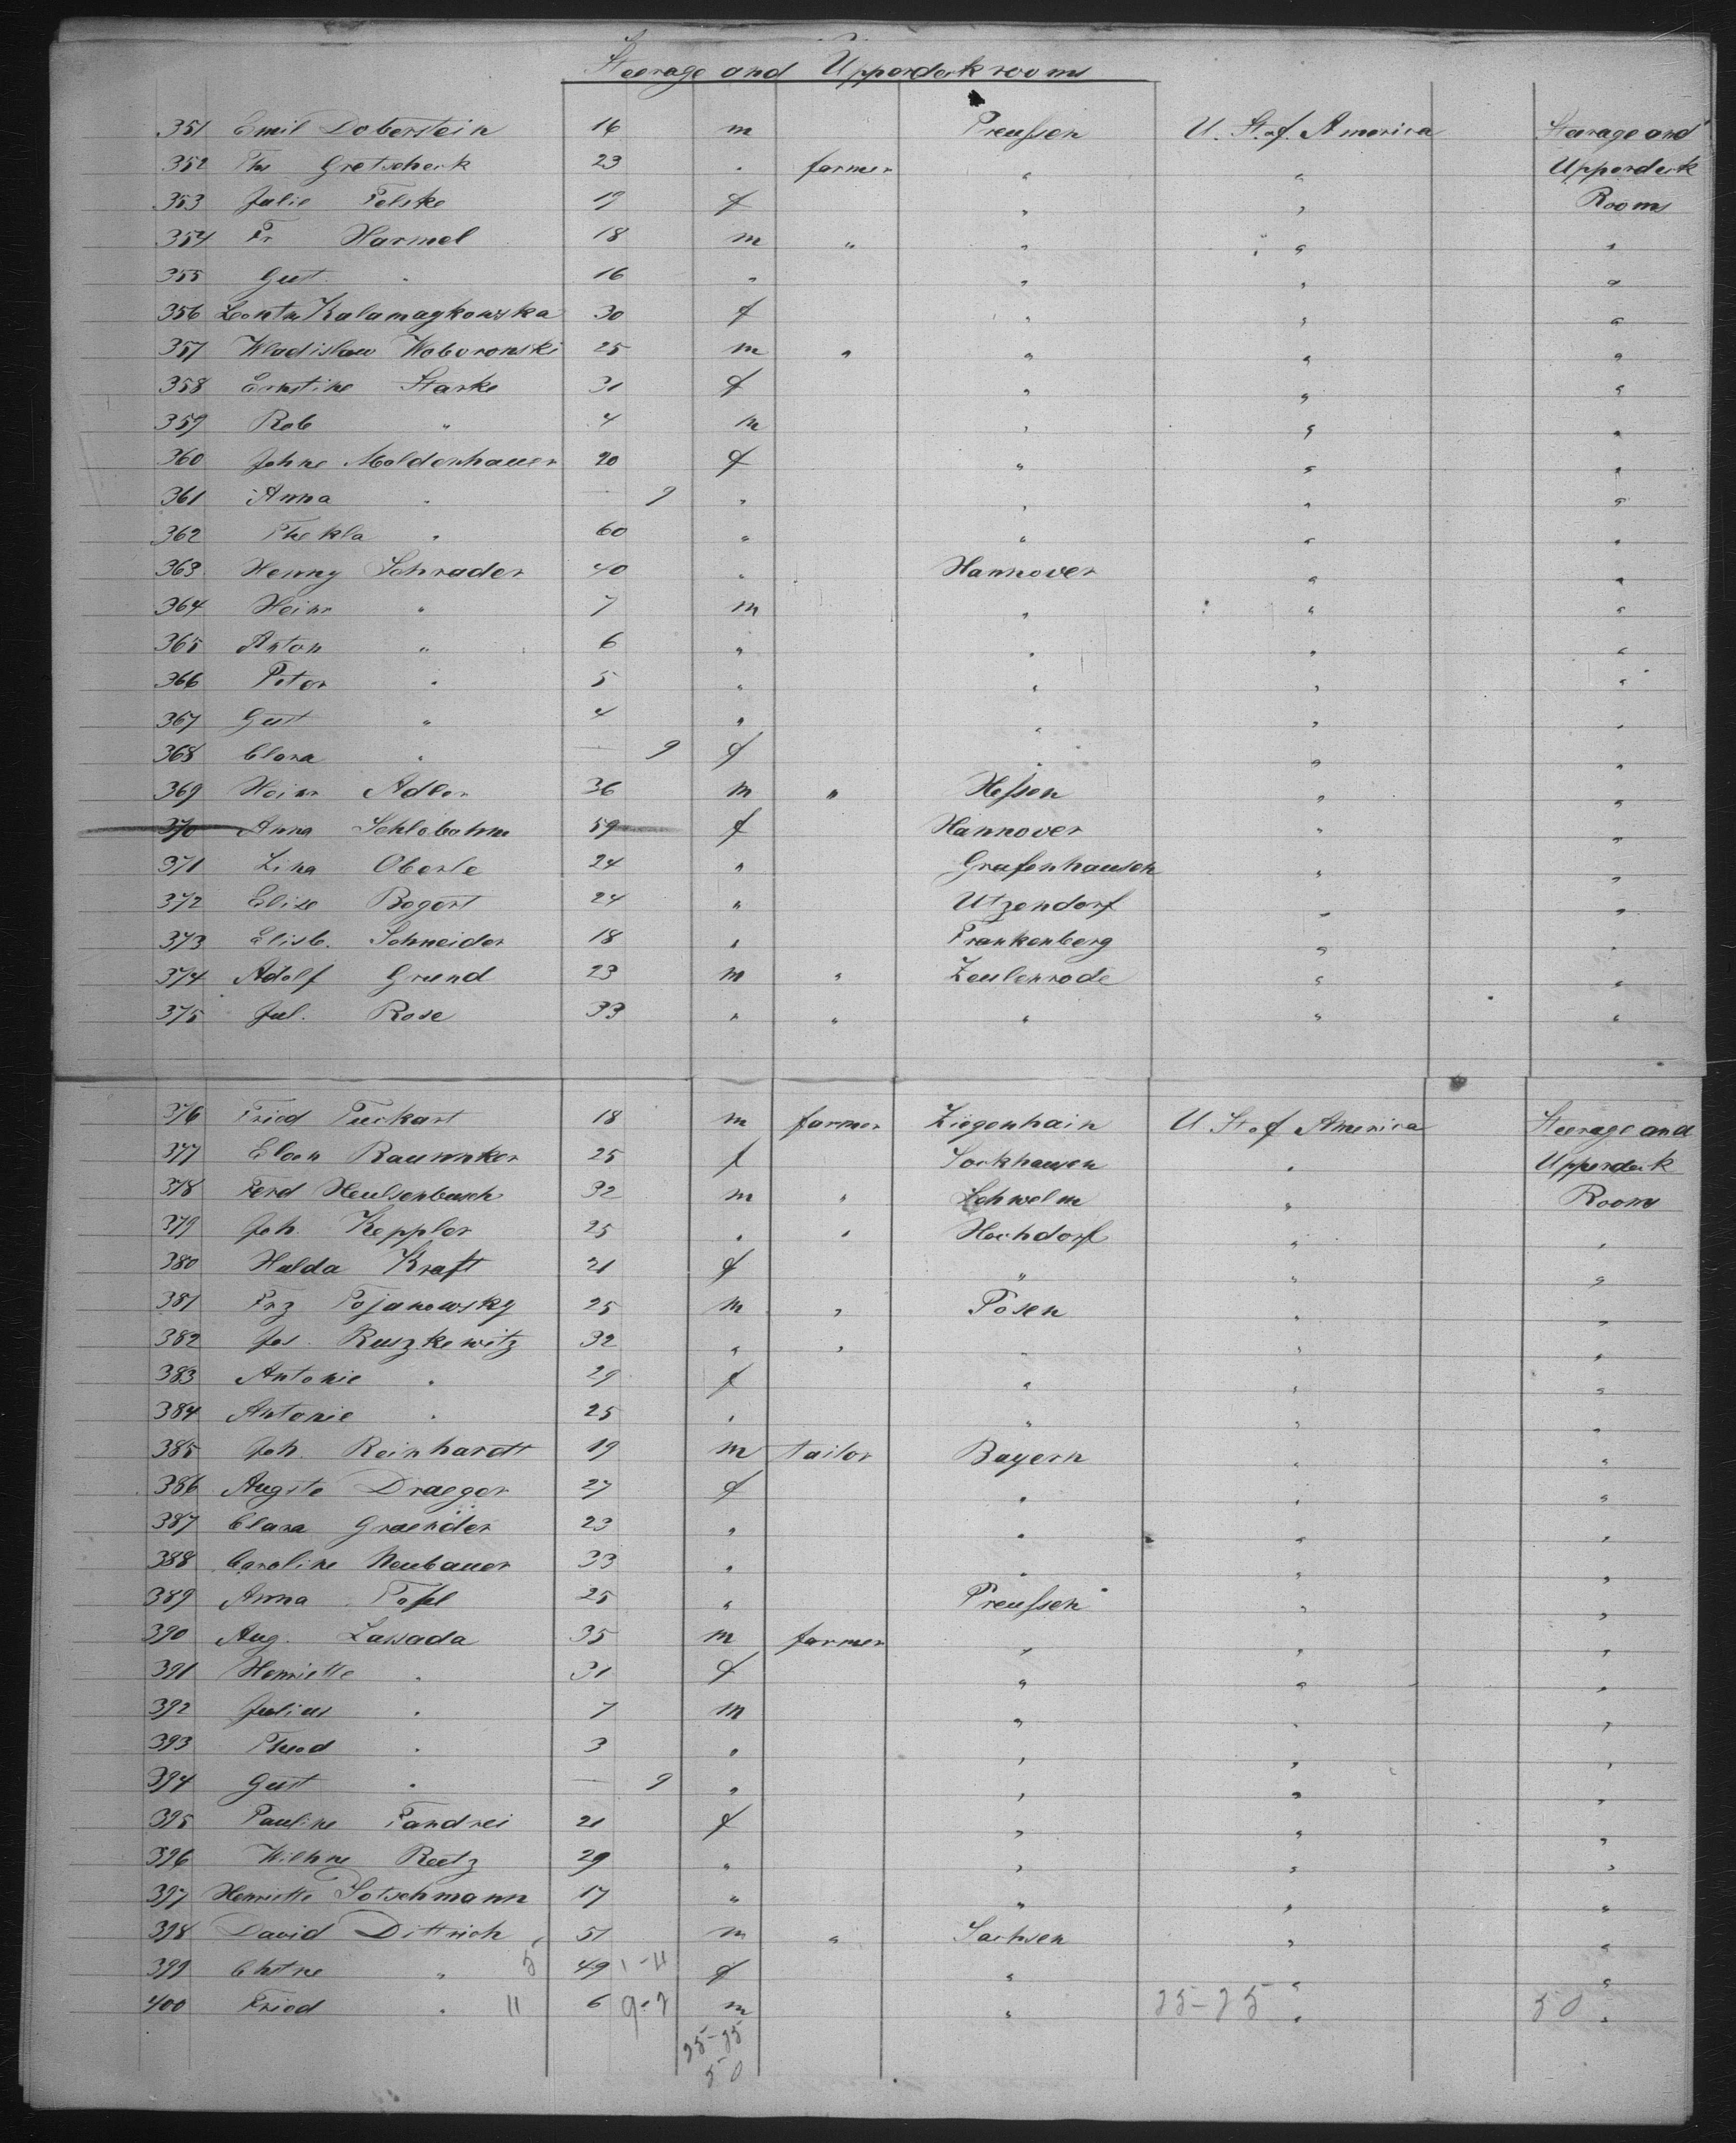 Steerage and Upperdeck rooms
351 Emil Doberstein 16 m Preußen U. St. of America Steerage and
352 Th Gretscheck 23 " farmer " " Upperdeck
353 Julie Felske 19 f " " Rooms
354 Fr Harmel 18 m " " " "
355 Gust " 16 " " " "
356 Kalamaykowska 30 f " " "
357 Wladislaw Woboronski 25 m " " " "
358 Ernstine Starke 31 f " " "
359 Rob " 4 m " " "
360 Johne Moldenhauer 20 f " " "
361 Anna " 9 " " " "
362 Thekla " 60 " " " "
363 Henny Schrader 40 " Hannover " "
364 Heinr " 7 m " " "
365 Anton " 6 " " " "
366 Peter " 5 " " " "
367 Gust " 4 " " " "
368 Clara " 9 f " " "
369 Heinr Adler 36 m " Heßen " "
370 Anna Schlobohm 59 f Hannover " "
371 Lina Oberle 24 " Grafenhausen " "
372 Elise Bogert 24 " Utzendorf " "
373 Elisb. Schneider 18 " Frankenberg " "
374 Adolf Grund 23 m " Zeulenrode " "
375 Jul. Rose 33 " " " " "
376 Fried Tuckart 18 m farmer Ziegenhain U. St of America Steerage and
377 Eleen 25 f " Upperdeck
378 Ferd Heulsenbusch 32 m " Schwelm " Rooms
379 Joh. Keppler 25 " " Hochdorf " "
380 Hulda Kraft 21 f " " "
381 Frz Pojanowsky 25 m " Posen " "
382 Jos. Ruszkewitz 32 " " " " "
383 Antonie " 29 f " " "
384 Antonie " 25 " " " "
385 Joh. Reinhardt 19 m tailor Bayern " "
386 Auguste Draeger 27 f " " "
387 Clara Graender 23 " " " "
388 Caroline Neubauer 33 " " " "
389 Anna 25 " Preußen " "
390 Aug. Lassada 35 m farmer " " "
391 Henriette " 31 f " " "
392 Julius " 7 m " " "
393 Theod " 3 " " " "
394 Gust " 9 " " " "
395 Pauline Fandrei 21 f " " "
396 Wilhne Reetz 29 " " " "
397 Henriette Totschmann 17 " " " "
398 David Dittrich 51 m " Sachsen " "
399 Chstne " 5 49 1-11 f " " "
400 Fried " 11 6 9-7 m " 25-25 " 50 "
25-25
50